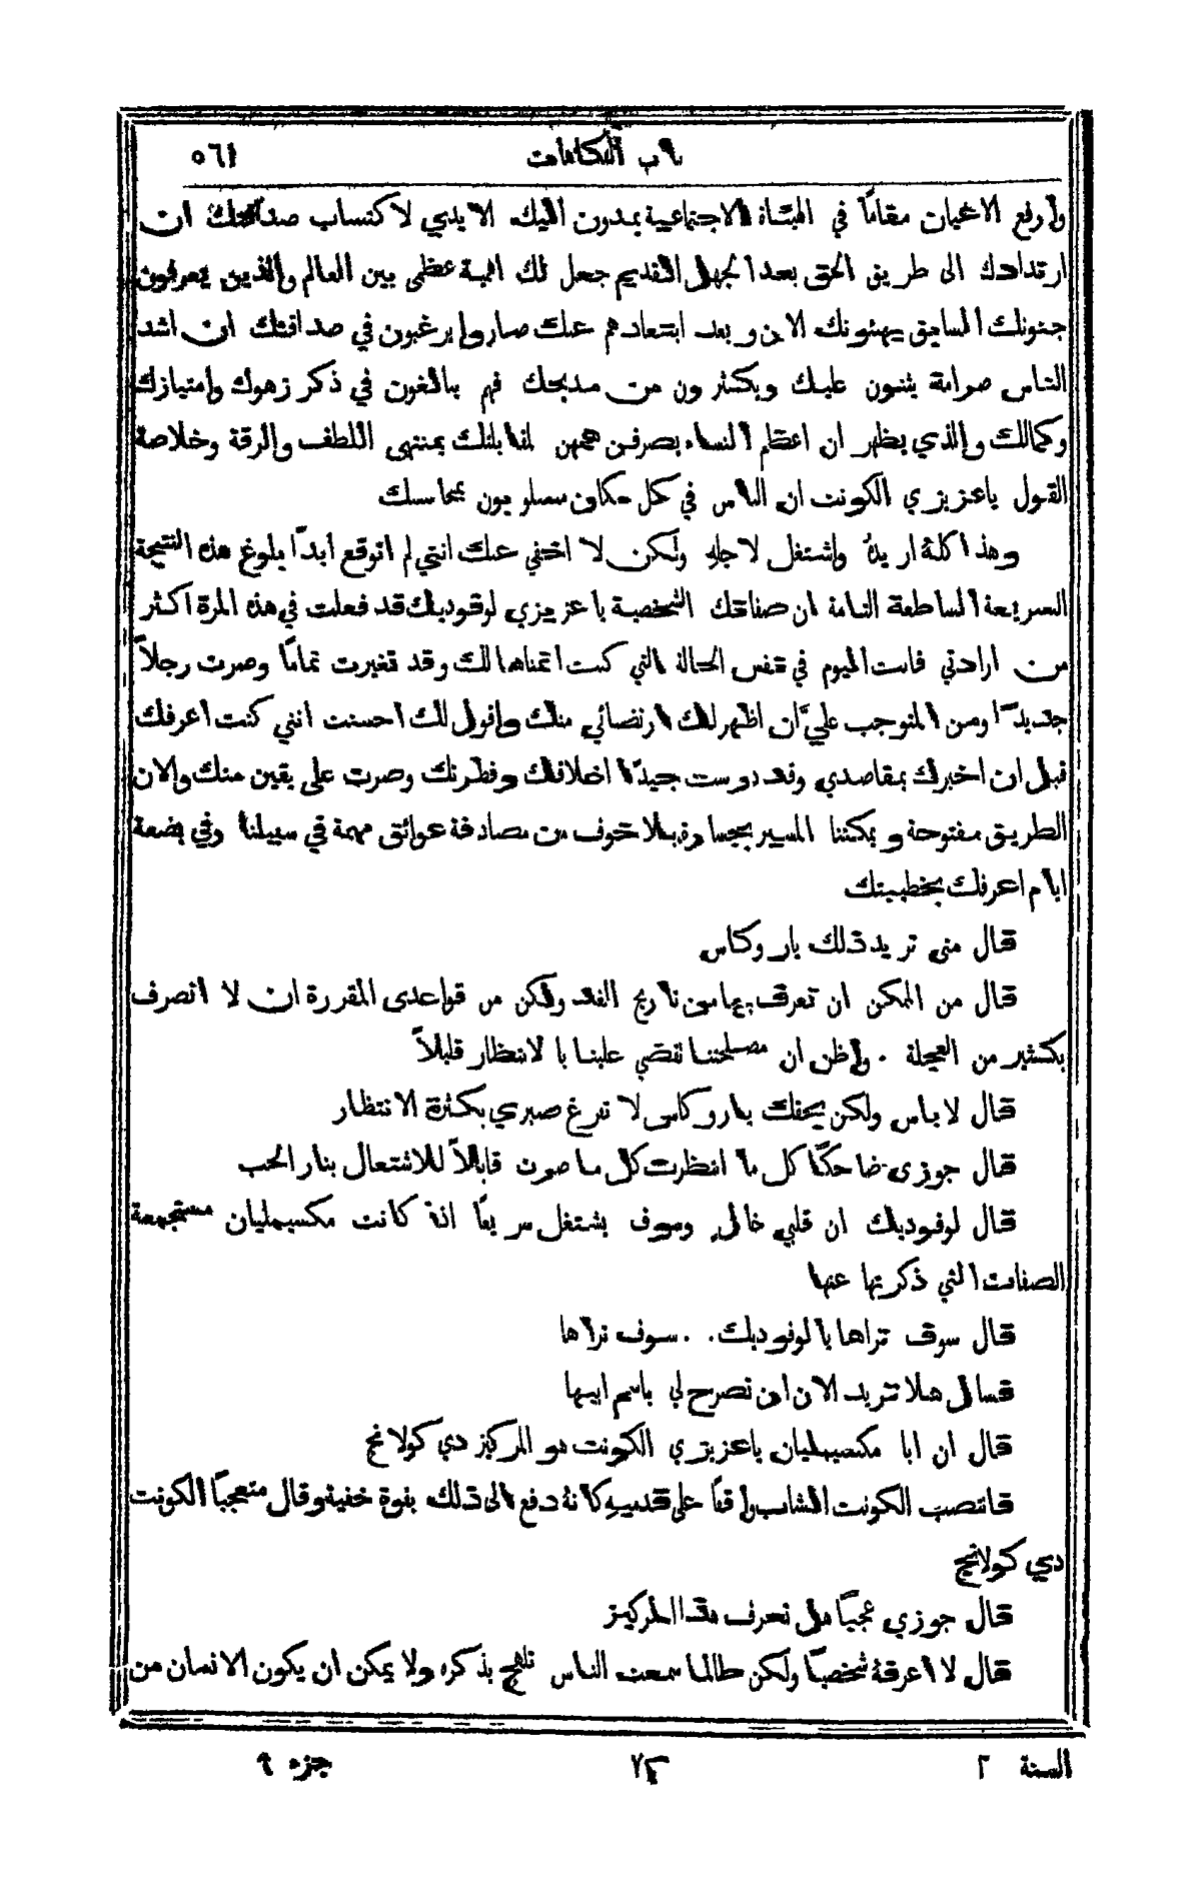 باب الفكاهات ٥٦١
وارفع الاعيان مقاماً في الهيئة الاجتماعية يمدون اليك الايدي لاكتساب صداقتك ان
ارتدادك الى طريق الحق بعد الجهل القديم جعل لك اهمية عظمى بين العالم والذين يعرفون
جنونك السابق يهنئونك الان وبعد ابتعادهم عنك صاروا يرغبون في صداقتك ان اشد
الناس صرامة يثنون عليك ويكثرون من مديحك فهم يبالغون في ذكر زهوك وامتيازك
وكمالك والذي يظهر ان اعظم النساء يصرفن همهن لمقابلتك بمنتهى اللطف والرقة وخلاصة
القول ياعزيزي الكونت ان الناس في كل مكان مسلوبون بمحاسنك
وهذا كلهُ اريدهُ واشتغل لاجلهِ ولكن لا اخفي عنك انني لم اتوقع ابداً بلوغ هذه النتيجة
السريعة الساطعة التامة ان صفاتك الشخصية ياعزيزي لوفوديك قد فعلت في هذه المرة اكثر
من ارادتي فانت اليوم في نفس الحالة التي كنت اتمناها لك وقد تغيرت تماماً وصرت رجلاً
جديداً ومن المتوجب عليَّ ان اظهر لك ارتضائي منك واقول لك احسنت انني كنت اعرفك
قبل ان اخبرك بمقاصدي وقد درست جيداً اخلاقك وفطرتك وصرت على يقين منك والان
الطريق مفتوحة ويمكننا المسير بجسارة بلا خوف من مصادفة عوائق مهمة في سبيلنا وفي بضعة
ايام اعرفك بخطيبتك
قال متى تريد ذلك ياروكاس
قال من الممكن ان تعرف بها من تاريخ الغد ولكن من قواعدي المقررة ان لا اتصرف
بكثير من العجلة . واظن ان مصلحتنا تقضي علينا بالانتظار قليلاً
قال لاباس ولكن بحقك ياروكاس لا تفرغ صبري بكثرة الانتظار
قال جوزي ضاحكاً كل ما انتظرت كل ما صرت قابلاً للاشتعال بنار الحب
قال لوفوديك ان قلبي خالٍ وسوف يشتغل سريعاً اذا كانت مكسيمليان مستجمعة
الصفات التي ذكرتها عنها
قال سوف تراها يالوفوديك . . سوف تراها
قال هلا تريد الان ان تصرح لي باسم ابيها
قال ان ابا مكسيمليان ياعزيزي الكونت هو المركيز دي كولانج
فانتصب الكونت الشاب واقفاً على قدميهِ كانهُ دفع الى ذلك بقوة خفية وقال متعجباً الكونت
دي كولانج
قال جوزي عجباً هل تعرف هذا المركيز
قال لا اعرفهُ شخصياً ولكن طالما سمعت الناس تلهج بذكره ولا يمكن ان يكون الانسان من
السنة ٢ جزء ٩